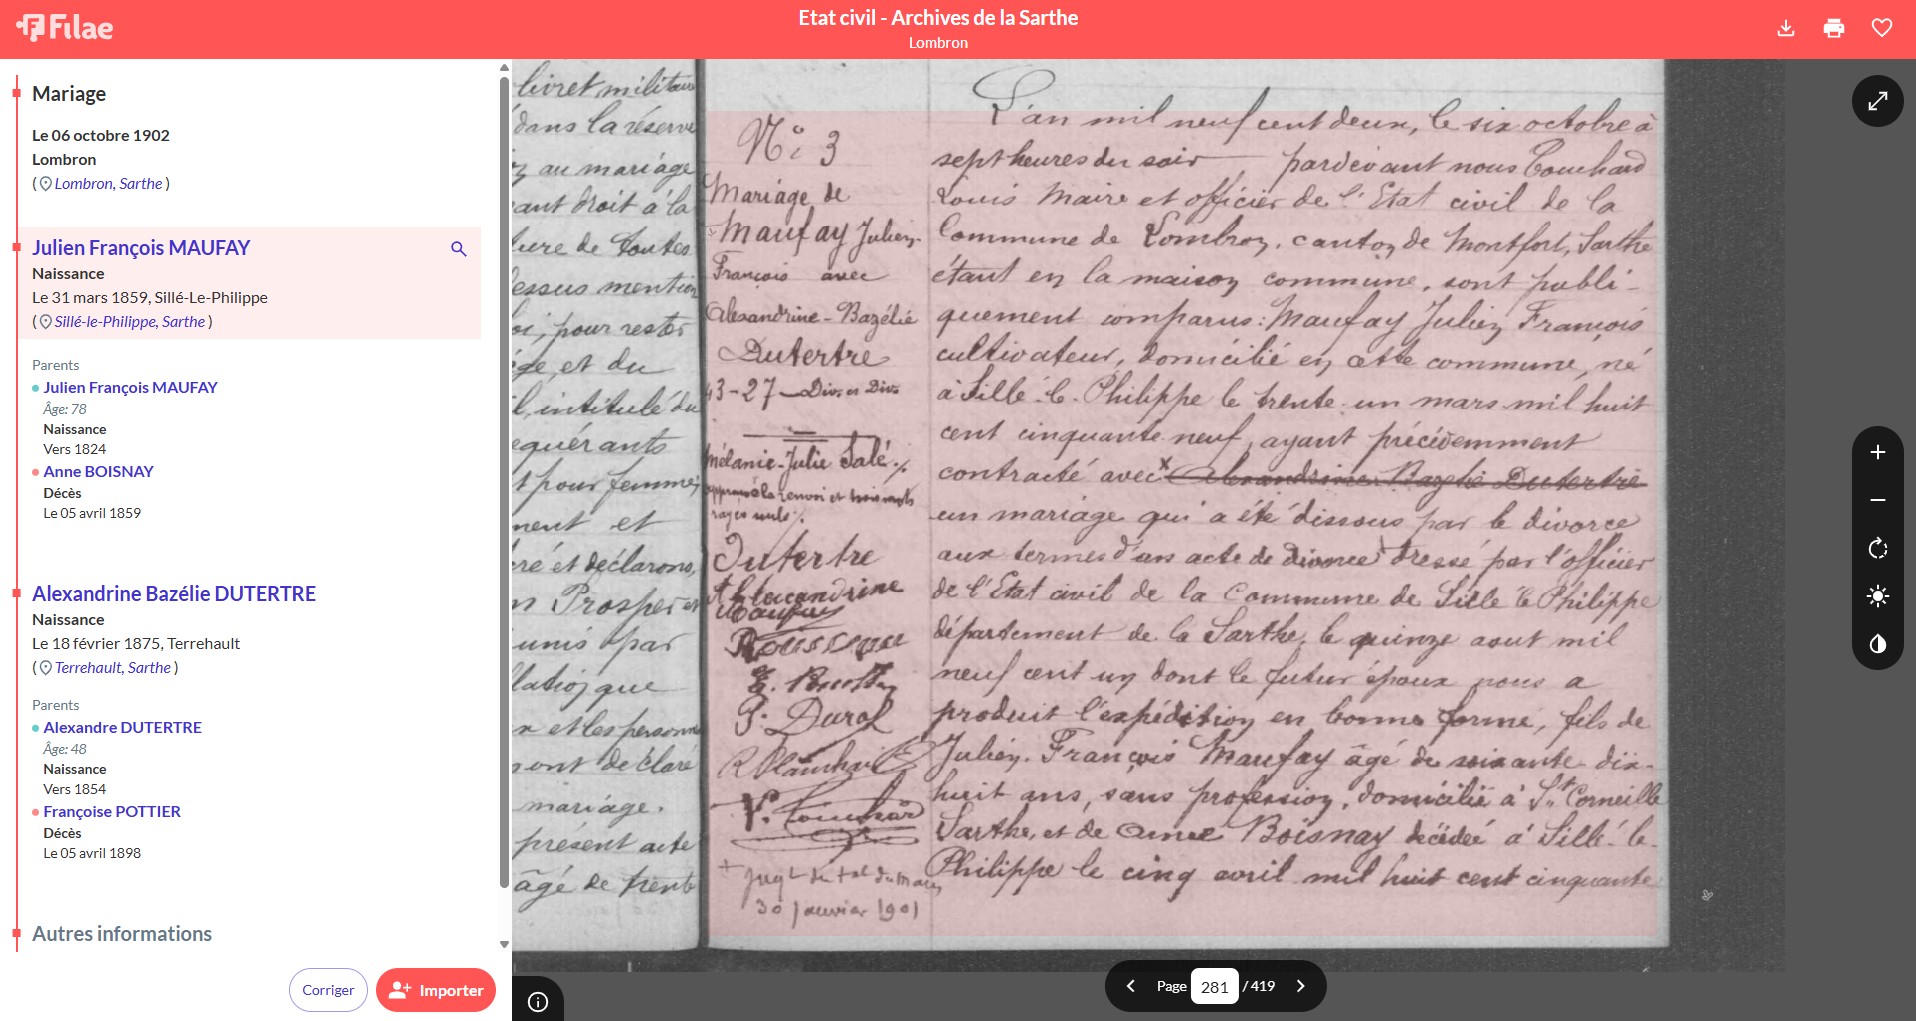 Filae
Etat civil - Archives de la Sarthe
Lombron
Mariage
Le 06 octobre 1902
Lombron
( Lombron, Sarthe )
Julien François MAUFAY
Naissance
Le 31 mars 1859, Sillé-Le-Philippe
( Sillé-le-Philippe, Sarthe )
Parents
Julien François MAUFAY
Âge: 78
Naissance
Vers 1824
Anne BOISNAY
Décès
Le 05 avril 1859
Alexandrine Bazélie DUTERTRE
Naissance
Le 18 février 1875, Terrehault
( Terrehault, Sarthe )
Parents
Alexandre DUTERTRE
Âge: 48
Naissance
Vers 1854
Françoise POTTIER
Décès
Le 05 avril 1898
Autres informations
Corriger
Importer
livret militaire
dans la réserve
au mariage
ant droit à la
ure de toutes
essus mention
oi, pour rester
et du
l, intitulé du
equérants
t pour femme,
ment et
ré et déclarons,
n Prosper et
unis par
lation que
x et les personn
ont déclaré
mariage.
présent acte
âgé de trente
N° 3
Mariage de
Maufay Julien-
François avec
Alexandrine-Bazélie
Dutertre
43-27 — Div. et Div.
Mélanie-Julie Salé
approuvé le renvoi et trois mots
rayés nuls
Dutertre
Alexandrine
Maufay
Rousseau
P. Duval
R Planchais
Jugt du tal du Mans
30 janvier 1901
L'an mil neuf cent deux, le six octobre à
sept heures du soir — pardevant nous Touchard
Louis Maire et officier de l'Etat civil de la
Commune de Lombron, canton de Montfort, Sarthe
étant en la maison commune, sont publi-
quement comparus: Maufay Julien François
cultivateur, domicilié en cette commune, né
à Sillé-le-Philippe le trente un mars mil huit
cent cinquante neuf, ayant précédemment
contracté avec x Alexandrine Bazélie Dutertre
un mariage qui a été dissous par le divorce
aux termes d'un acte de divorce dressé par l'officier
de l'Etat civil de la Commune de Sillé le Philippe
département de la Sarthe, le quinze aout mil
neuf cent un dont le futur époux nous a
produit l'expédition en bonne forme, fils de
Julien-François Maufay âgé de soixante-dix-
huit ans, sans profession, domicilié à St Corneille
Sarthe, et de Anne Boisnay décédée à Sillé-le-
Philippe le cinq avril mil huit cent cinquante
Page 281 / 419